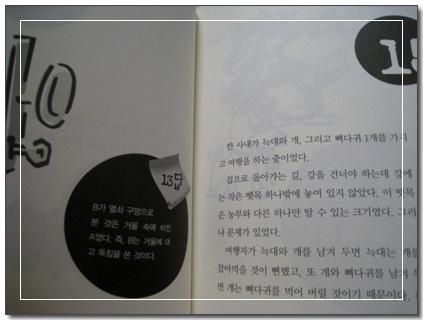 13답
B가 열쇠 구멍으로
본 것은 거울 속에 비친
A였다. 즉, B는 거울에 대
고 독침을 쏜 것이다.
한 사내가 늑대와 개, 그리고 뼈다귀 1개를 가지
고 여행을 하는 중이었다.
집으로 돌아가는 길, 강을 건너야 하는데 강에
는 작은 뗏목 하나밖에 놓여 있지 않았다. 이 뗏목
은 농부와 다른 하나만 탈 수 있는 크기였다. 그러
나 문제가 있었다.
여행자가 늑대와 개를 남겨 두면 늑대는 개를
잡아먹을 것이 뻔했고, 또 개와 뼈다귀를 남겨
면 개는 뼈다귀를 먹어 버릴 것이기 때문이다.